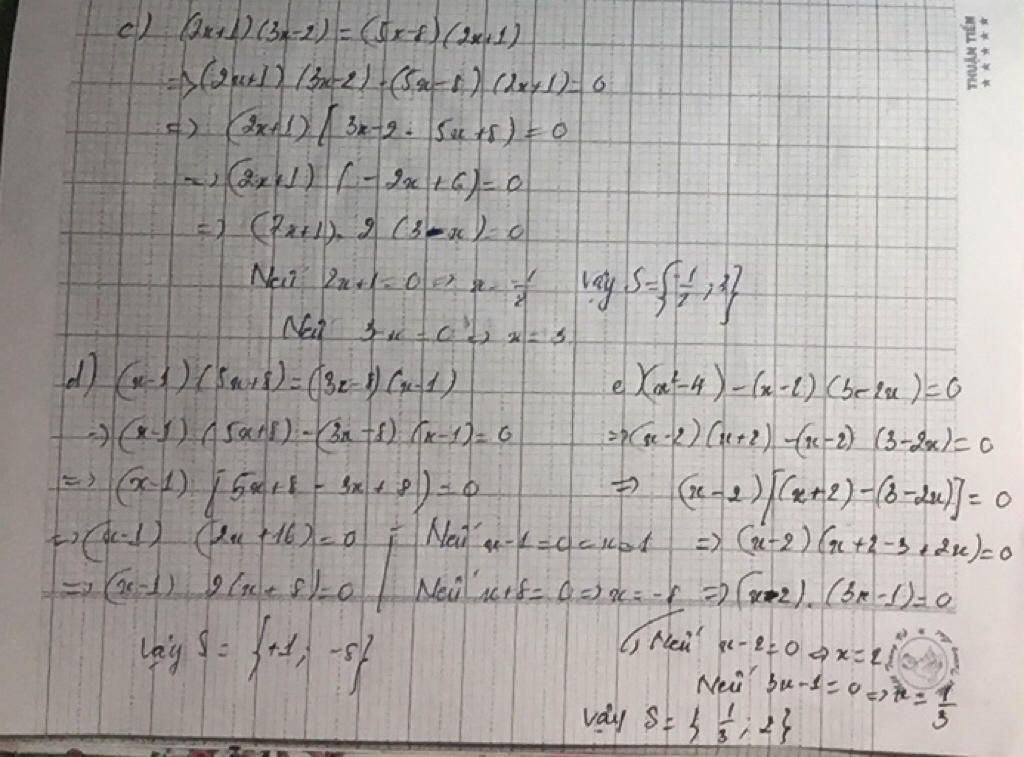 c) (2x+1)(3x-2) = (5x-8)(2x+1)
=> (2x+1) (3x-2) - (5x-8) (2x+1) = 0
=> (2x+1) [3x-2 - 5x+8) = 0
=> (2x+1) (-2x+6) = 0
=> (2x+1). 2 (3-x) = 0
Nếu 2x+1=0 => x = -1/2 Vậy S={-1/2; 3}
Nếu 3-x=0 => x=3
d) (x-1)(5x+8) = (3x-8)(x-1)
=> (x-1) (5x+8) - (3x-8) (x-1) = 0
=> (x-1) [5x+8 - 3x+8) = 0
=> (x-1) (2x+16) = 0
=> (x-1) 2(x+8) = 0
Nếu x-1=0 => x=1
Nếu x+8=0 => x=-8
Vậy S = {+1; -8}
e) (x²-4) - (x-2) (3-2x) = 0
=> (x-2) (x+2) - (x-2) (3-2x) = 0
=> (x-2) [(x+2) - (3-2x)] = 0
=> (x-2) (x+2-3+2x) = 0
=> (x-2). (3x-1) = 0
Nếu x-2=0 => x=2
Nếu 3x-1=0 => x=1/3
Vậy S = {1/3; 2}
THUẬN TIẾN